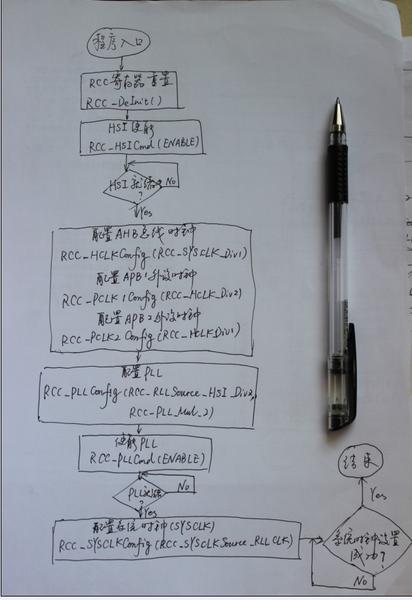 程序入口
RCC寄存器重置
RCC_DeInit()
HSI使能
RCC_HSICmd(ENABLE)
HSI就绪
?
No
Yes
配置AHB总线时钟
RCC_HCLKConfig(RCC_SYSCLK_Div1)
配置APB1外设时钟
RCC_PCLK1Config(RCC_HCLK_Div2)
配置APB2外设时钟
RCC_PCLK2Config(RCC_HCLK_Div1)
配置PLL
RCC_PLLConfig(RCC_RLLSource_HSI_Div2,
RCC_PLL_Mul_2)
使能PLL
RCC_PLLCmd(ENABLE)
PLL就绪
?
No
Yes
配置系统时钟(SYSCLK)
RCC_SYSCLKConfig(RCC_SYSCLKSource_RLLCLK)
系统时钟设置
成功?
No
Yes
结束